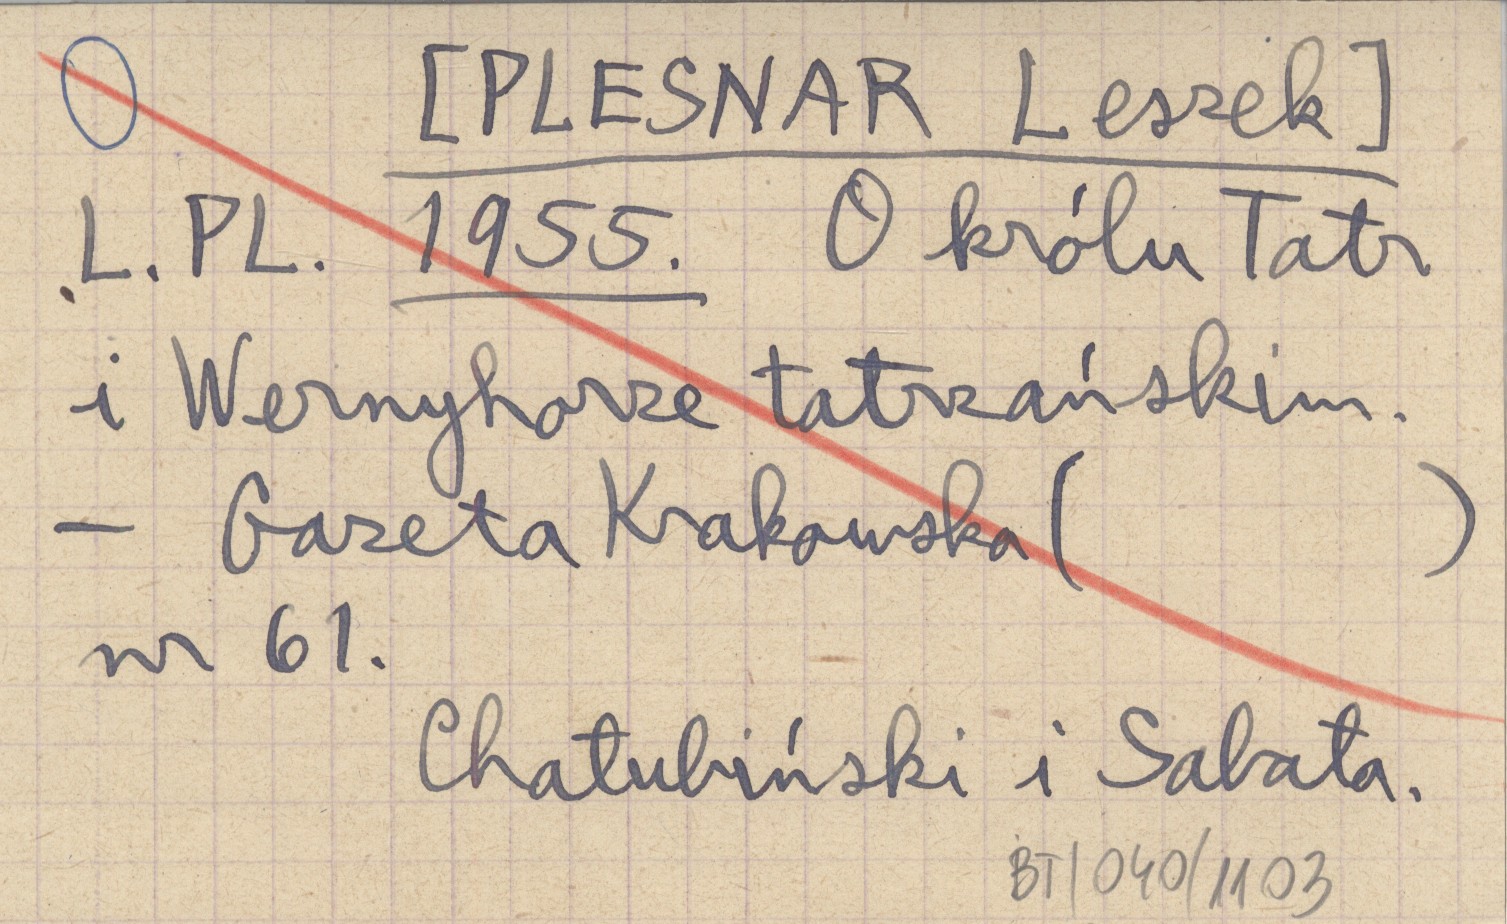 [PLESNAR Leszek]
L.PL. 1955. O królu Tatr
i Wernyhorze tatrzańskim.
— Gazeta Krakowska ( )
nr 61.
Chałubiński i Sabała.
BT/040/1103